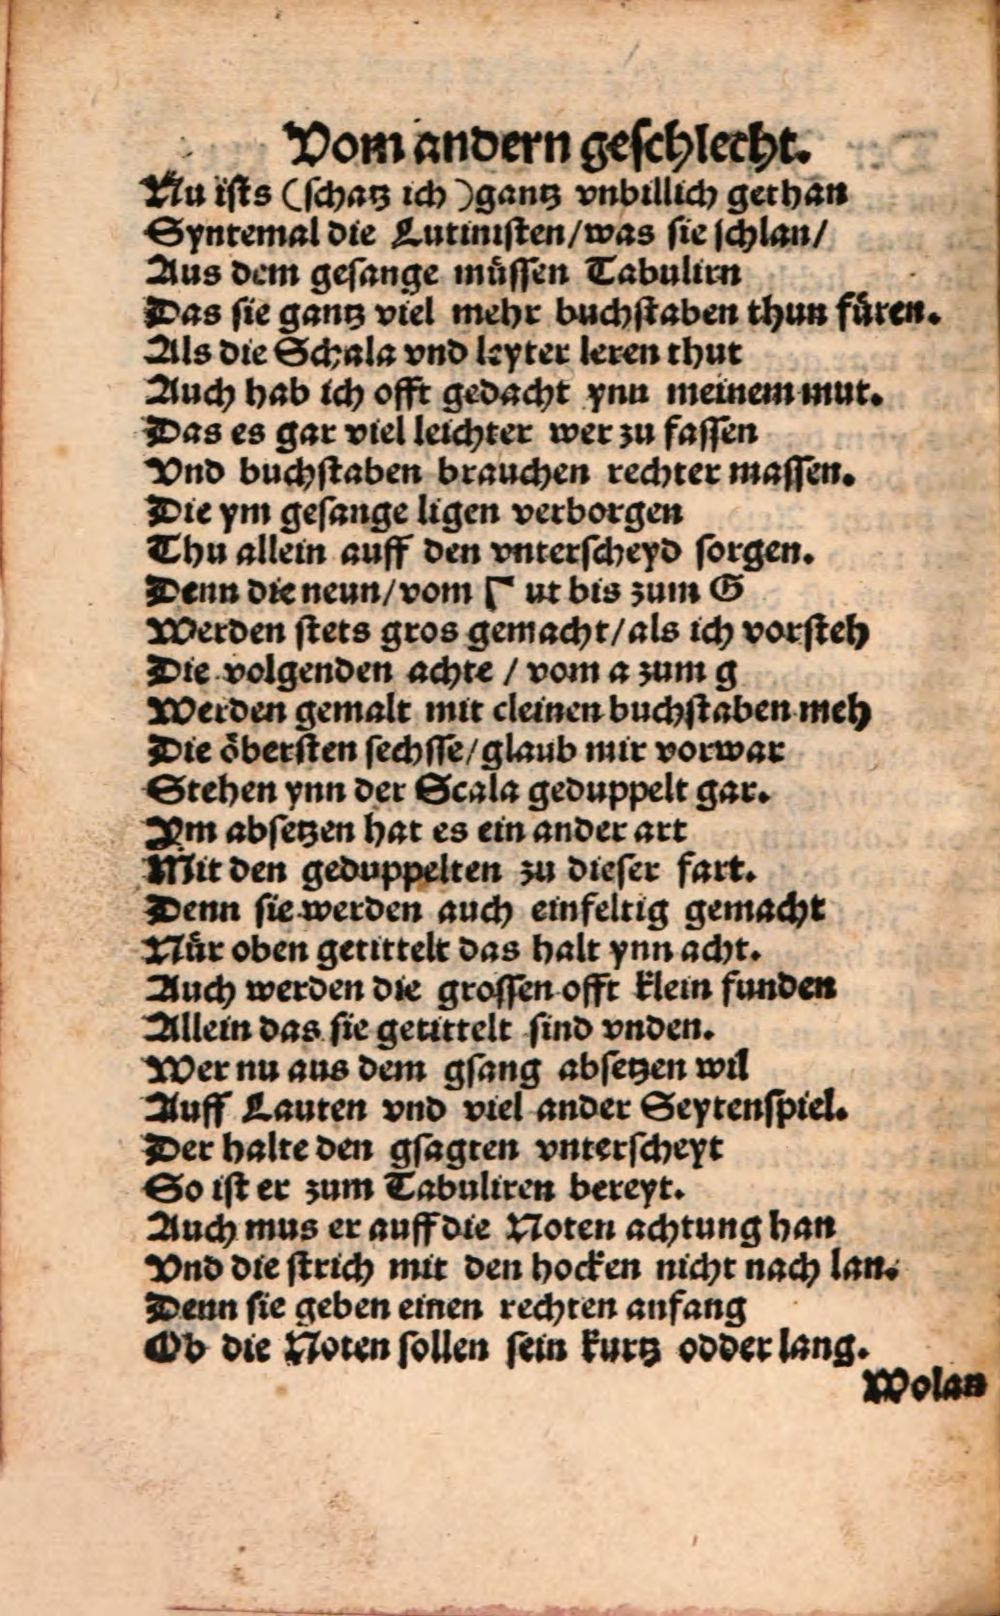 Vom andern geschlecht.
Nu ists (schatz ich) gantz vnbillich gethan
Syntemal die Lutinisten/was sie schlan/
Aus dem gesange müssen Tabulirn
Das sie gantz viel mehr buchstaben thun füren.
Als die Scala vnd leyter leren thut
Auch hab ich offt gedacht ynn meinem mut.
Das es gar viel leichter wer zu fassen
Vnd buchstaben brauchen rechter massen.
Die ym gesange ligen verborgen
Thu allein auff den vnterscheyd sorgen.
Denn die neun/vom Γ ut bis zum G
Werden stets gros gemacht/als ich vorsteh
Die volgenden achte / vom a zum g
Werden gemalt mit cleinen buchstaben meh
Die öbersten sechsse/glaub mir vorwar
Stehen ynn der Scala geduppelt gar.
Ym absetzen hat es ein ander art
Mit den geduppelten zu dieser fart.
Denn sie werden auch einfeltig gemacht
Nür oben getittelt das halt ynn acht.
Auch werden die grossen offt klein funden
Allein das sie getittelt sind vnden.
Wer nu aus dem gsang absetzen wil
Auff Lauten vnd viel ander Seytenspiel.
Der halte den gsagten vnterscheyt
So ist er zum Tabuliren bereyt.
Auch mus er auff die Noten achtung han
Vnd die strich mit den hocken nicht nach lan.
Denn sie geben einen rechten anfang
Ob die Noten sollen sein kurtz odder lang.
Wolan